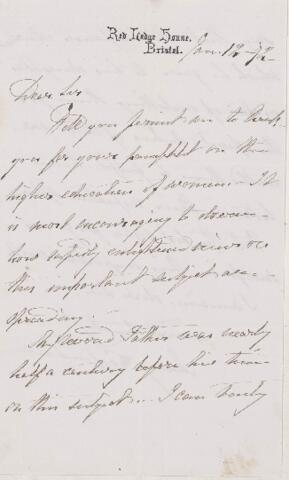 Red Lodge House,
Bristol.
Jan. 12 -72
Dear Sir
Will you permit me to thank
you for your pamphlet on the
higher education of women. It
is most encouraging to
how rapidly enlightened views on
this important subject are
spreading.
My revered Father was nearly
half a century before his time
on this subject. I can truly